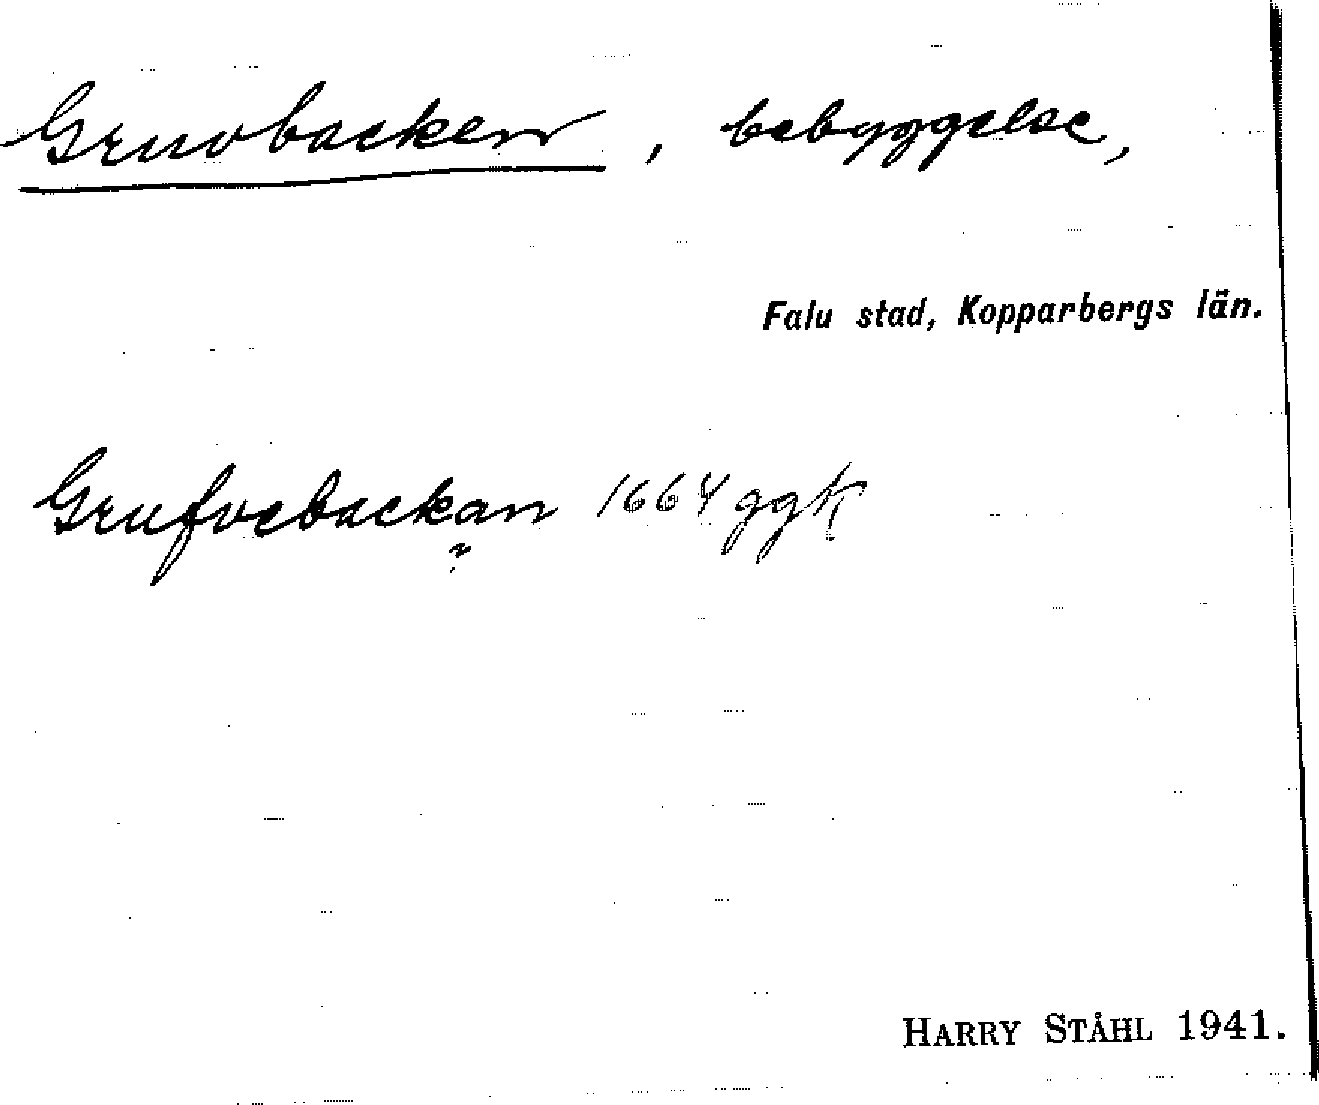 Gruvbacken, bebyggelse,
Falu stad, Kopparbergs län.
Grufvebackan 1664 ggk
?
HARRY STÅHL 1941.